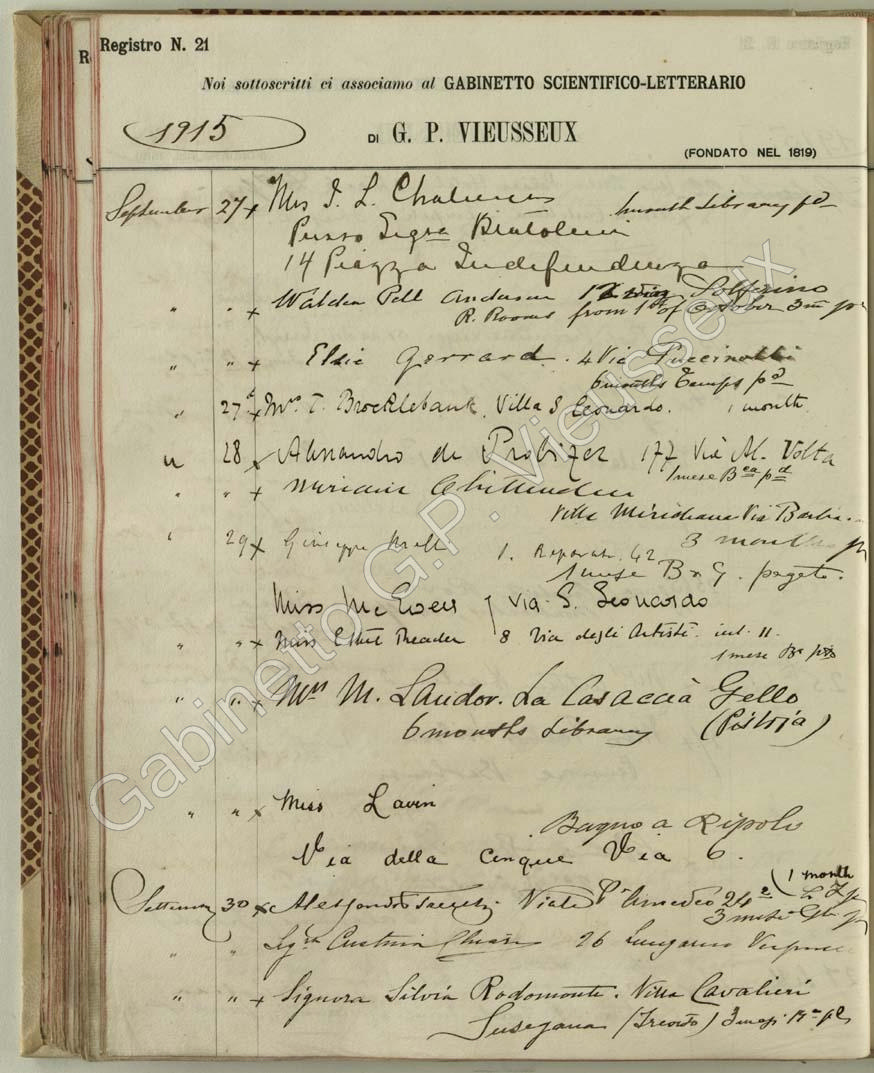 Registro N. 21
Noi sottoscritti ci associamo al GABINETTO SCIENTIFICO-LETTERARIO
1915
DI G. P. VIEUSSEUX
(FONDATO NEL 1819)
September 27 x Mrs J. L. 1 month Library pd
14 Piazza Indipendenza
" " x Walden Pell Anderson 12 Solferino
R. Rooms from 1st of October 3m
" " x Elsie Gerrard. 4 Via Puccinotti
6 months pd
" 27 x Mrs T. Brocklebank, Villa S Leonardo. 1 month
" 28 x Alessandro de Probizer 177 Via A. Volta
1 mese pd
" " x Miriam Chittenden
Villa Meridiana Via
3 months
" 29 x Giuseppe 42
1 mese B e G. pagato.
Miss McEwen 7 Via S. Leonardo
" " x Miss Ethel Theader 8 Via degli Artisti. int. 11.
1 mese
" " x Mrs M. Landor. La Casaccia Gello
6 months Library (Pistoja)
" " x Miss Lavin
Bagno a Ripoli
Via della Cinque Via 6.
1 month
Settembre 30 x Alessandro Viale Pe Amedeo 24
3 mesi
" " 26 Lungarno Vespucci
" " x Signora Silvia Rodomonte. Villa Cavalieri
Susegana (Treviso) 3 mesi
Gabinetto G.P. Vieusseux